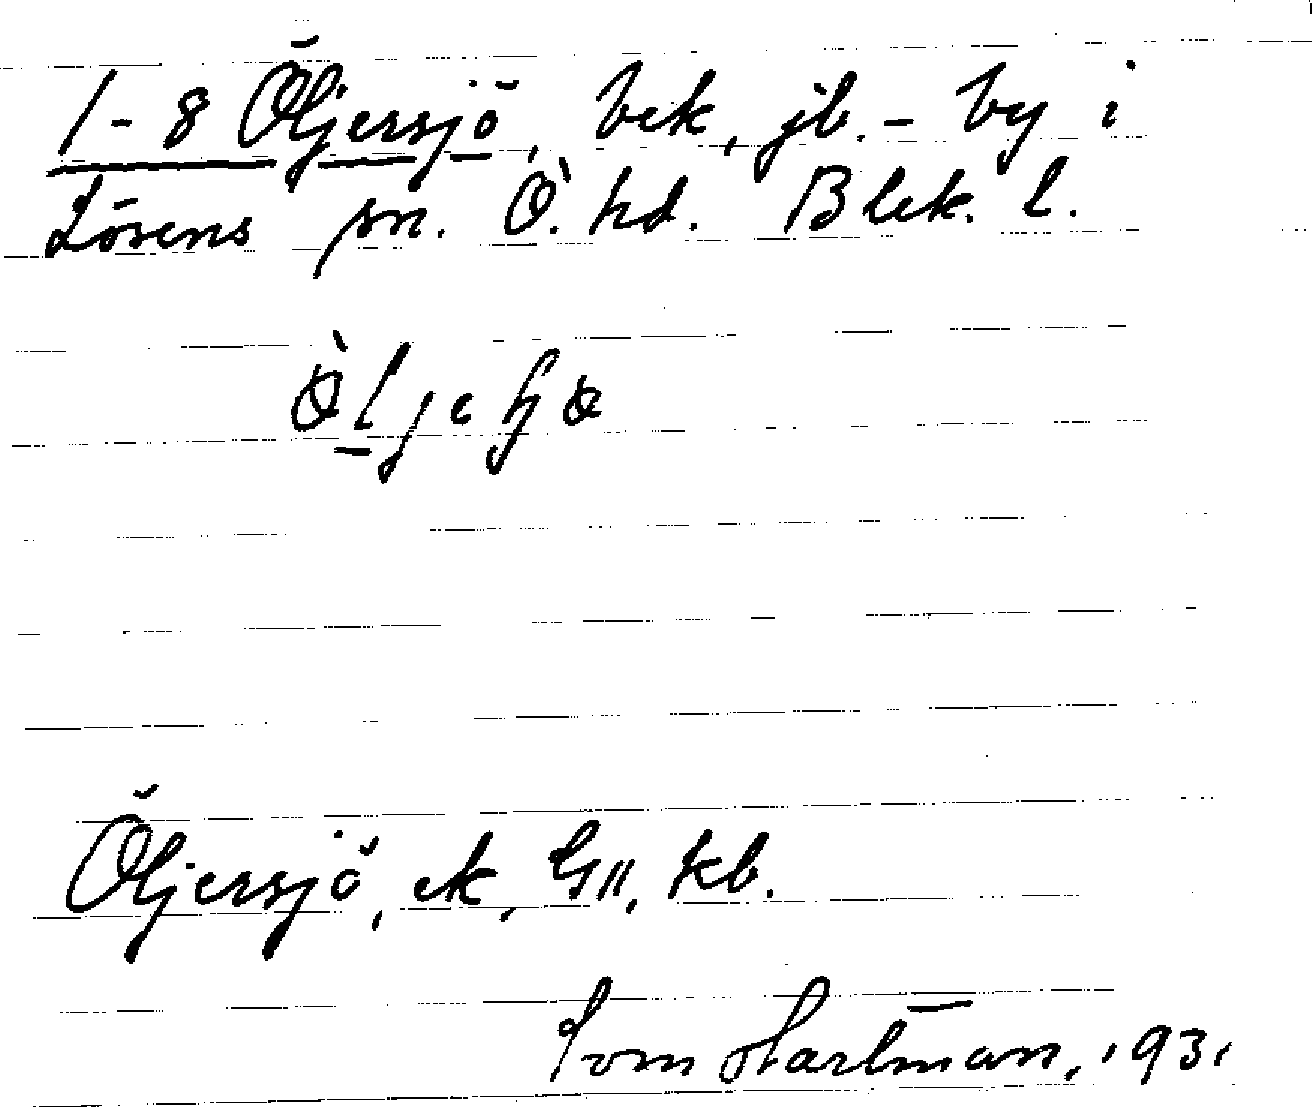 1-8 Öljersjö, bek, jb.-by i
Lösens sn. Ö. hd. Blek. l.
Öljersjö, ek, GII, kb.
Tom Hartman, 1931